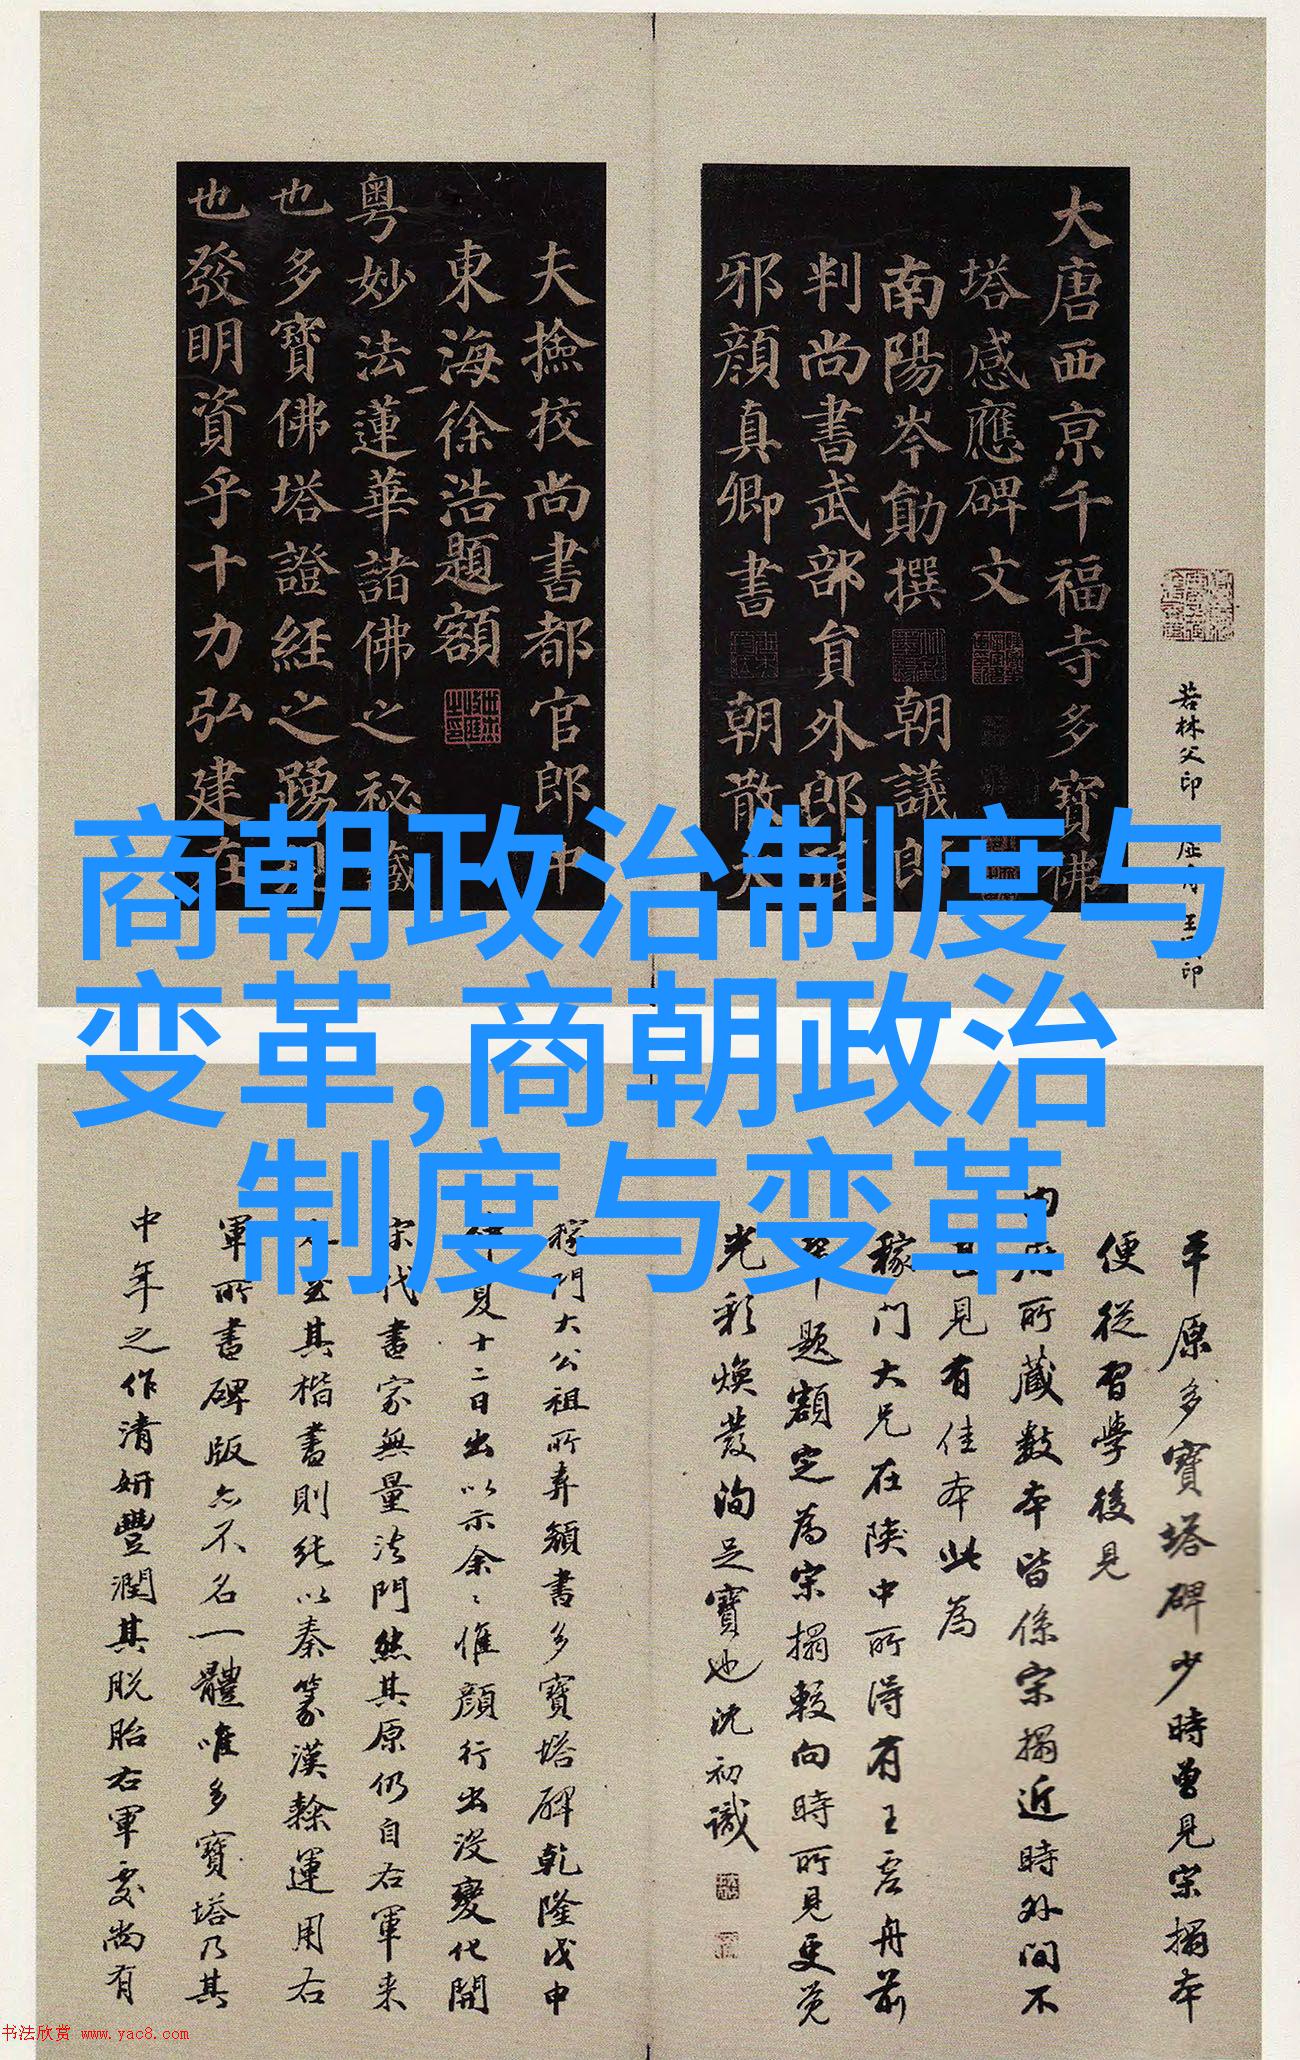 商朝政治制度与
变革,商朝政治
制度与变革
若林父印
大唐西京千福寺多寶佛
塔感應碑文
南陽岑勛撰 朝議郎
判尚書武部負外郎
邪顏真卿書 朝散大
夫撿挍尚書都官郎中
東海徐浩題額
粵妙法蓮華諸佛之祕藏
也多寶佛塔證經之踴現
也發明資乎十力弘建在
平原多寶塔碑少時曾見宋搨本
便從習學後見
内府所藏數本皆係宋搨近時外間不
見有佳本此為
稼門大兄在陝中所得有王虛舟前
題額定為宋搨較向時所見更覺
光彩煥發洵足寶也沈初識
稼門大公祖所弆顏書多寶塔碑乾隆戊申
夏十二日出以示余惟顏行出沒變化開
宋代書家無量法門然其原仍自右軍来
至其楷書則純以秦篆漢隸運用右
軍所書碑版亦不名一體唯多寶塔乃其
中年之作清妍豐潤其脱胎右軍處尚有
书法欣赏 www.yac8.com